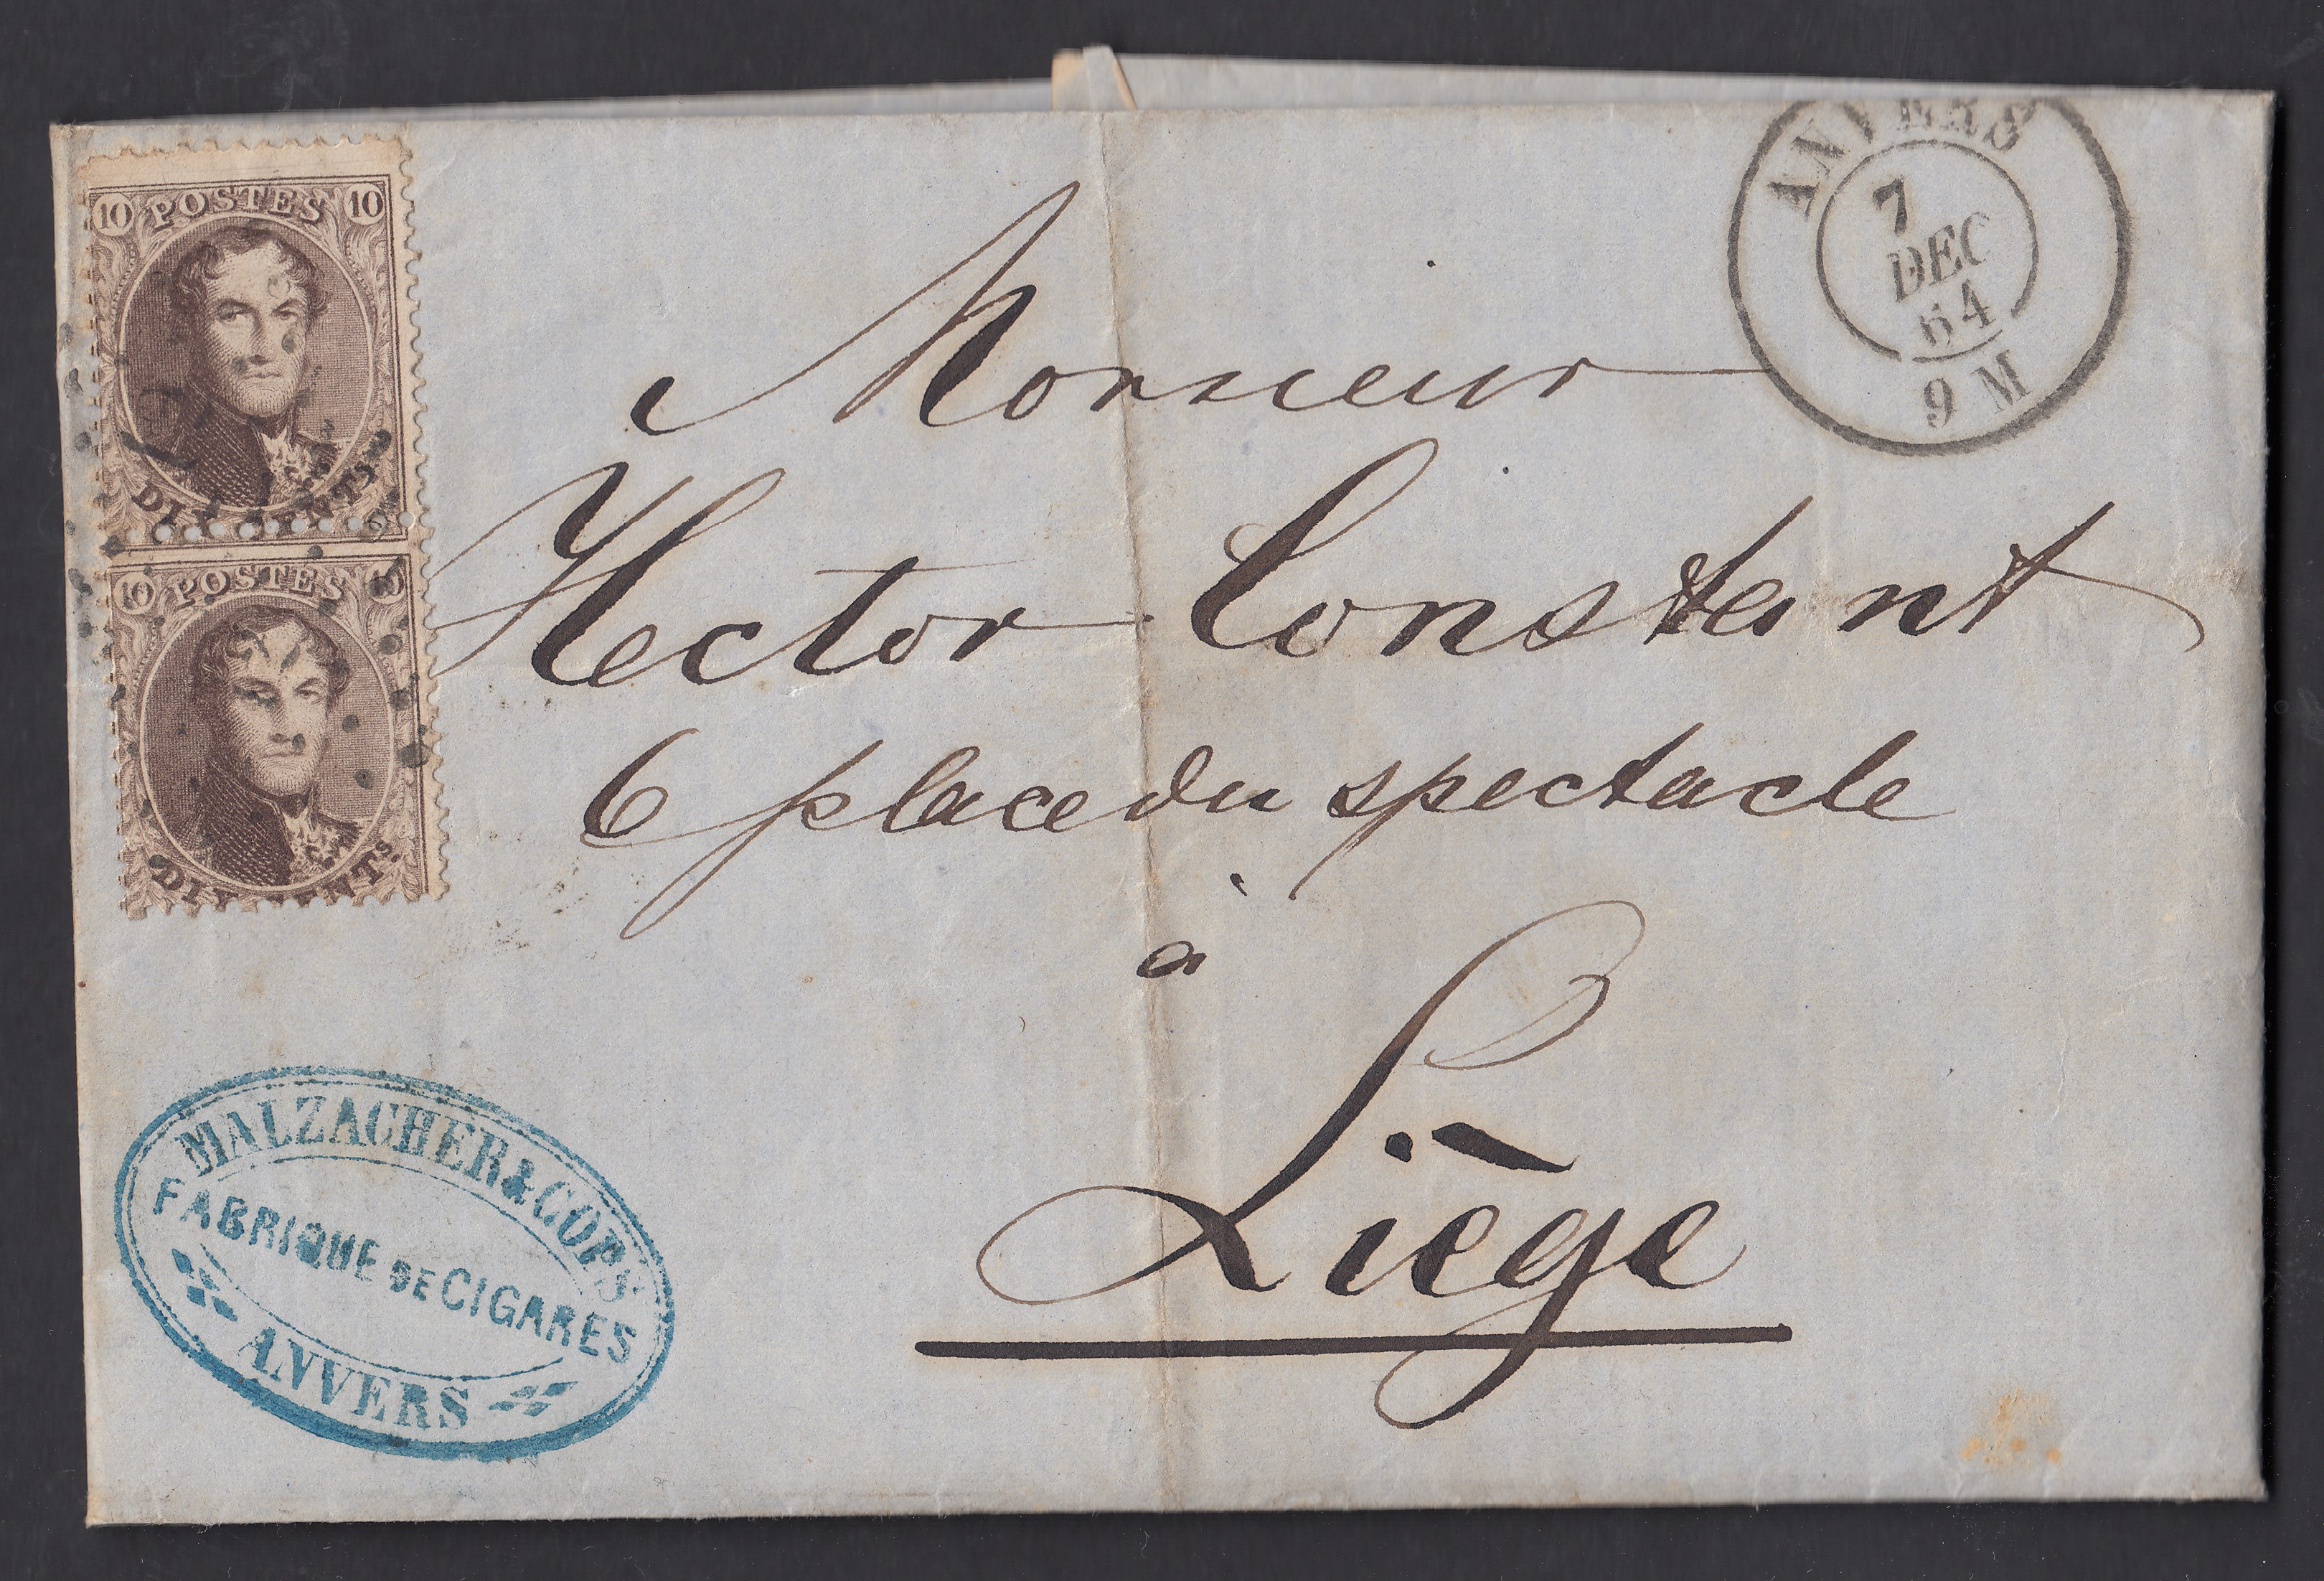 10 POSTES 10
DIX CENTS
10 POSTES 10
DIX CENTS
ANVERS
7
DEC
64
9 M
Monsieur
Hector Constant
6 place du spectacle
à
Liège
MALZACHER & COPS
FABRIQUE DE CIGARES
ANVERS